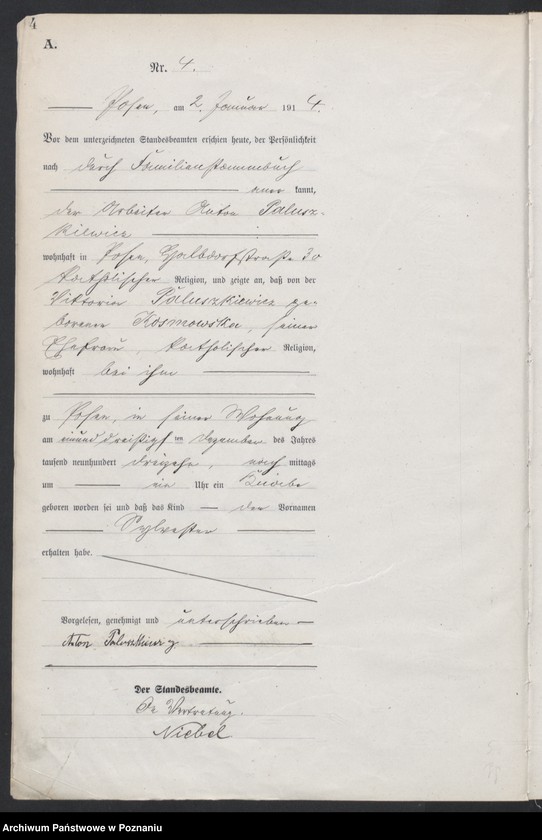 4
A.
Nr. 4.
Posen, am 2. Januar 1914.
Vor dem unterzeichneten Standesbeamten erschien heute, der Persönlichkeit
nach durch Familienstammbuch
aner kannt,
der Arbeiter Anton Palusz-
kiewicz
wohnhaft in Posen, 30
katholischer Religion, und zeigte an, daß von der
Viktoria Paluszkiewicz ge-
borenen Kosmowska, seiner
Ehefrau, katholischer Religion,
wohnhaft bei ihm
zu Posen, in seiner Wohnung
am einunddreißigsten Dezember des Jahres
tausend neunhundert dreizehn, nach mittags
um ein Uhr ein Knabe
geboren worden sei und daß das Kind den Vornamen
Sylvester
erhalten habe.
Vorgelesen, genehmigt und unterschrieben
Anton Paluszkiewicz
Der Standesbeamte.
In Vertretung.
Niebel
Archiwum Państwowe w Poznaniu